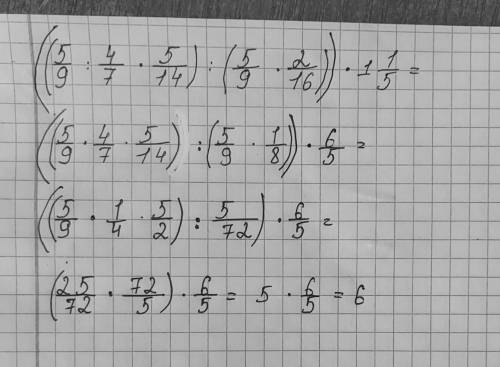 ((5/9 : 4/7 · 5/14) : (5/9 · 2/16)) · 1 1/5 =
((5/9 · 4/7 · 5/14) : (5/9 · 1/8)) · 6/5 =
((5/9 · 1/4 · 5/2) : 5/72) · 6/5 =
(25/72 · 72/5) · 6/5 = 5 · 6/5 = 6